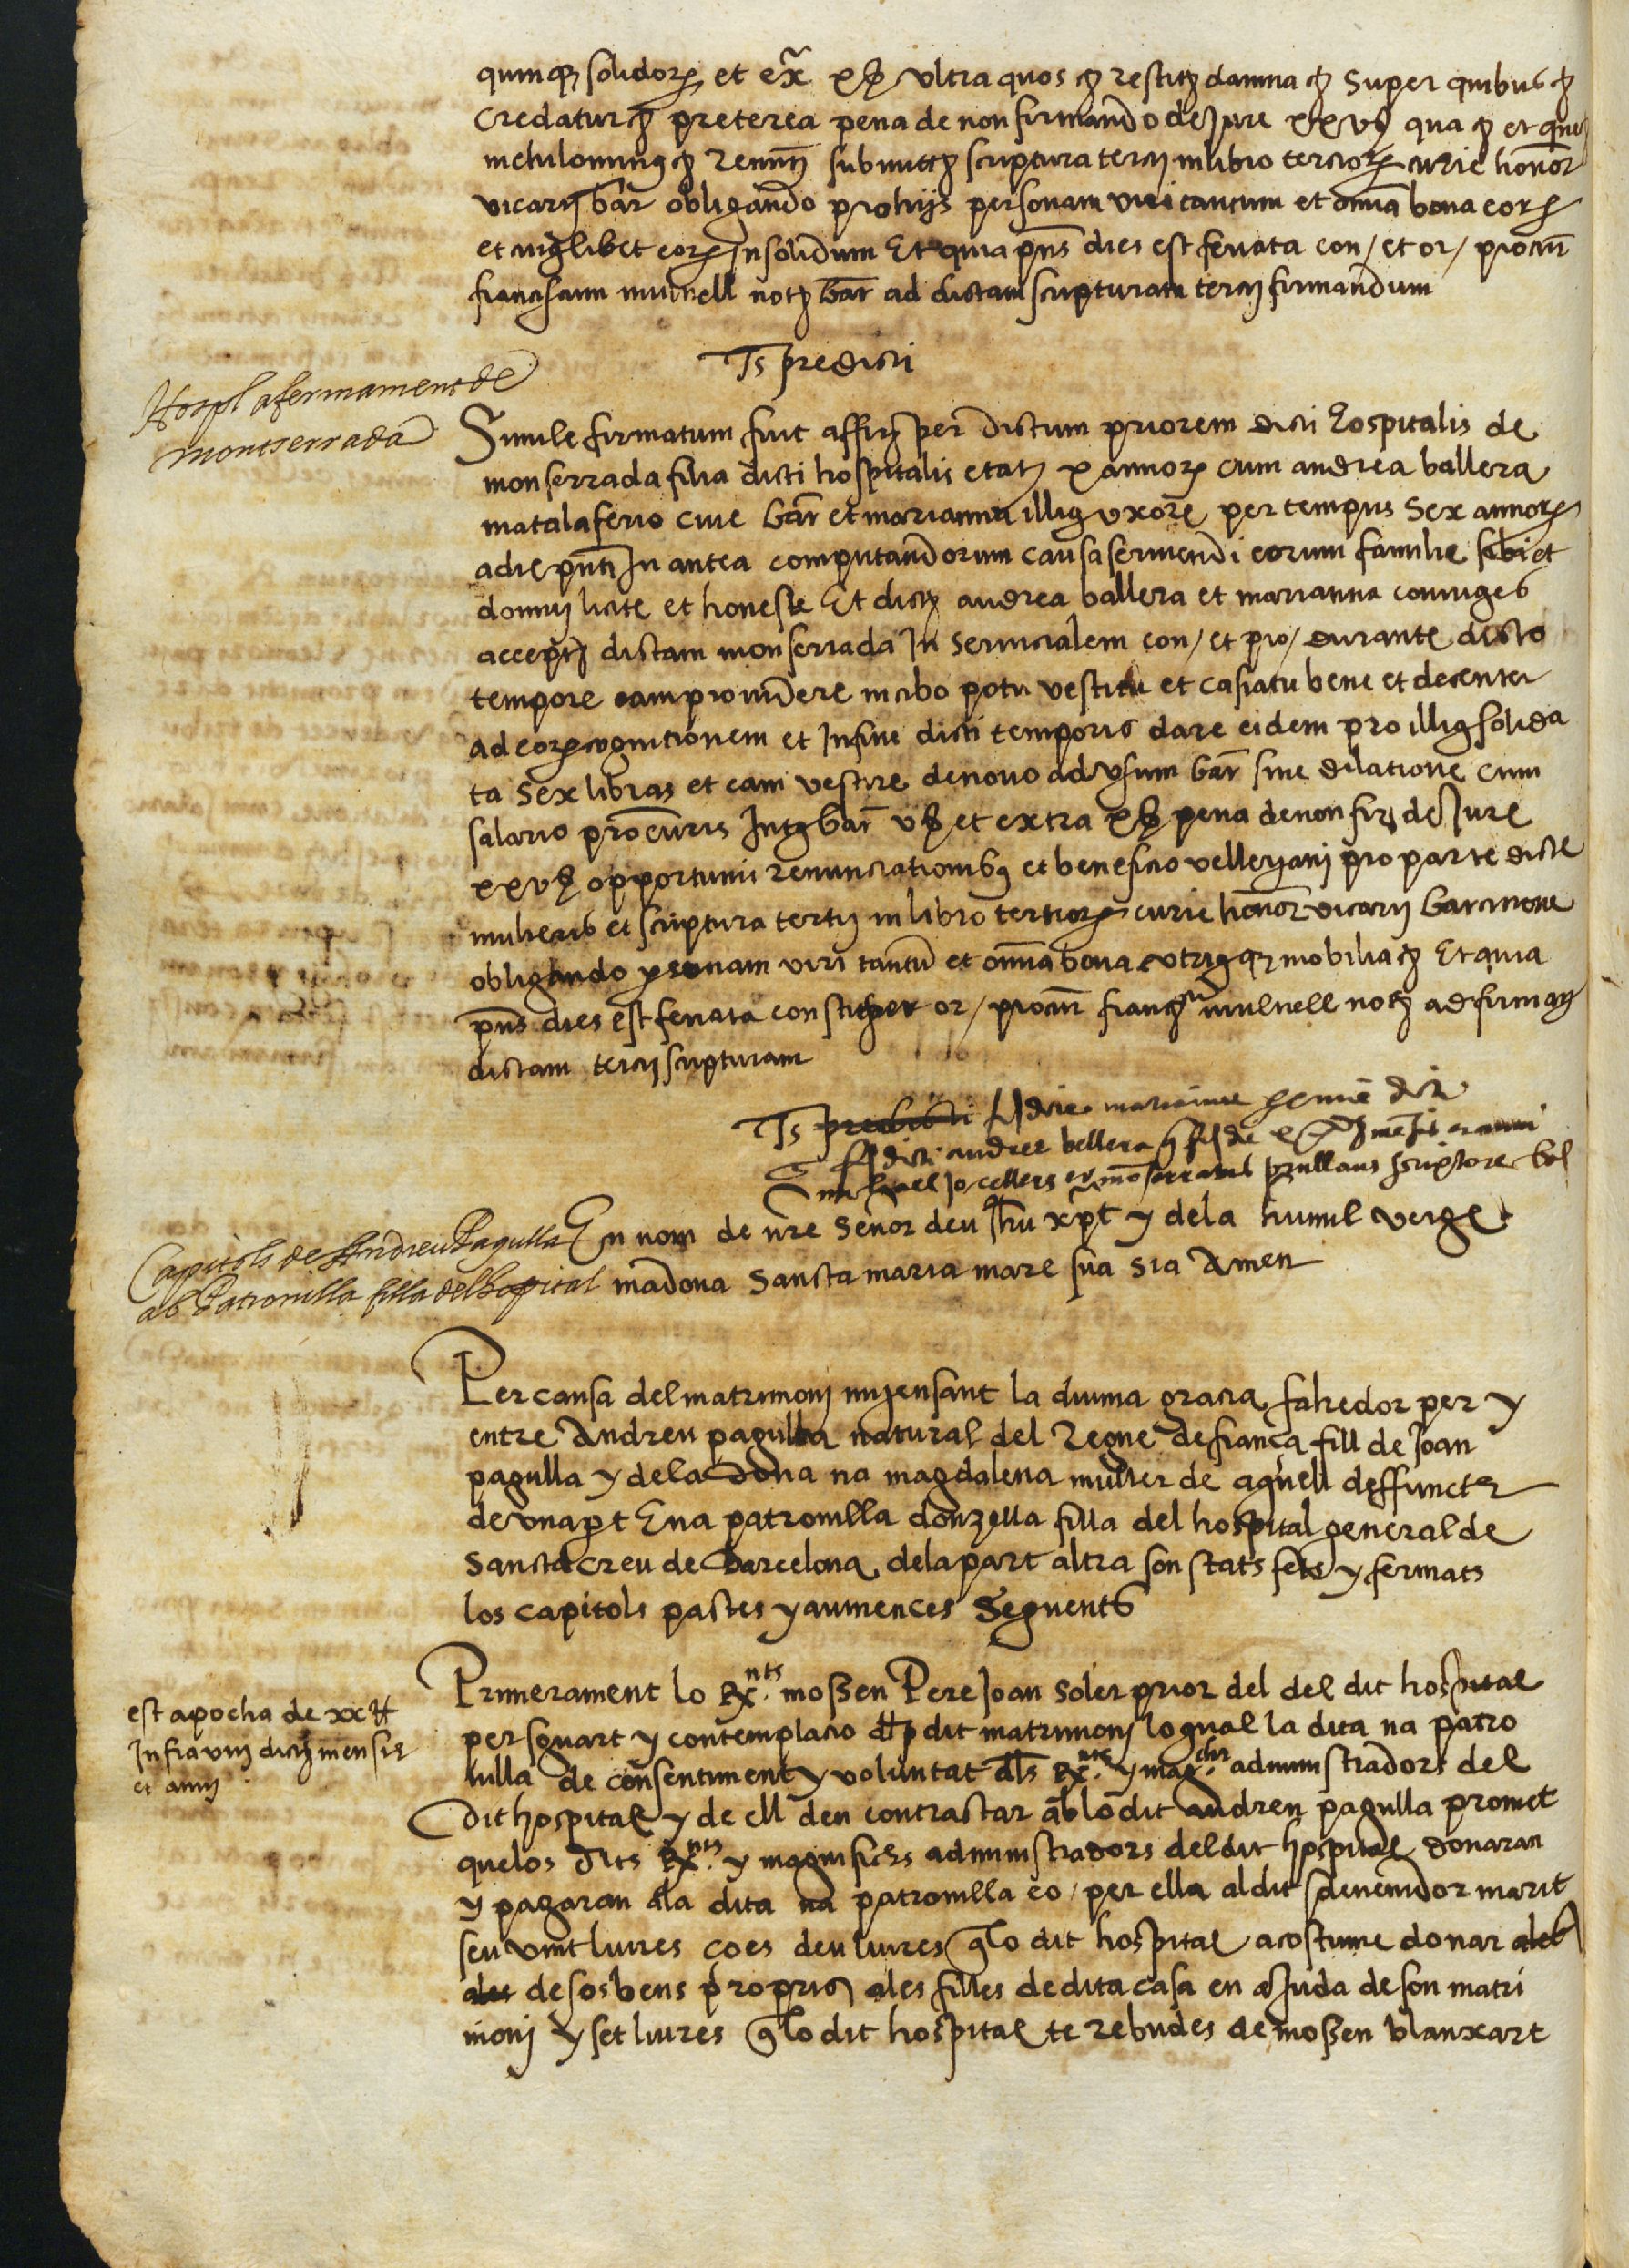 quinq3 solidor et ex̃ xß ultra quos etc restit damna etc super quibus etc
credatur etc preterea pena de non firmando de Jure xxvß qua etc et que
metulonius etc renuñ submittẽ scriptura tercij in libro tercior curie honor
vicarij bar̃ obligando pro hijs personam viri tantum et omnia bona eor
et cuiuslibet eor insolidum Et quia p̃ns dies est feriata con / et or / procur̃
francissum mulnell not bar̃ ad dictam scripturam tercij firmandum
Ts predicti
Hospl afermament de
montserrada
Simile firmatum fuit affir per dictum priorem dicti hospitalis de
monserrada filia dicti hospitalis etatis x annor cum andrea ballera
matalaferio cive bar̃ et marianna illius uxore per tempus sex annor
a die p̃nti In antea computandorum causa serviendi eorum familie sibi et
domui licite et honeste Et dicti andrea ballera et marianna coniuges
accept dictam monserrada In servicialem con / et pro / durante dicto
tempore eam providere in cibo potu vestitu et calsiatu bene et decenter
ad eor cognitionem et In fine dicti temporis dare eidem pro illius solida
ta sex libras et eam vestire de novo ad usum bar̃ sine dilatione cum
salario procuris Intus bar̃ vß et extra xß pena de non fir de Jure
xxvß opportunii renunciationibus et beneficio velleyani pro parte dicte
mulieris et scriptura tertij in libro tertior curie honor vicarij barcinone
obligando personam viri tantum et omnia bona utriusq3 mobilia etc Et quia
p̃ns dies est feriata constit et or / procur̃ francum mulnell not ad firmam
dictam tercij scripturam
Ts predicti dicte marianne
dicti andree ballera
michael Jo cellers et monserratus prullans scriptores
Capitols de Andreu Pagulla
ab Patronilla filla del Hospital
En nom de nre señor deu Jhu xpt y dela humil verge
madona Sancta maria mare sua sia Amen
Per causa del matrimoni mijensant la divina gracia fahedor per y
entre Andreu pagulla natural del Regne de fiança fill de Joan
pagulla y dela dona na magdalena muller de aquell deffuncts
de una pt E na patronilla donzella filla del hospital general de
Sancta creu de Barcelona dela part altra son stats fets y fermats
los capitols pactes y avinences Seguents
est apocha de xx ℔
Infra viij dicti mensis
et anni
Primerament lo Rx.nts moßen Pere Joan Soler prior del del dit hospital
per sguart y contemplacio del dit matrimoni lo qual la dita na patro
nilla de consentiment y voluntat dls Rx.nts y mag.chs administradors del
dit hospital y de ell deu contractar ab lo dit andreu pagulla promet
que los dits Rx.nts y magnifichs administradors del dit hospital donaran
y pagaran ala dita na patronilla eo / per ella al dit sdevenidor marit
seu vint liures ço es deu liures q̃ lo dit hospital acostume donar ales
ales de sos bens propris ales filles de dita casa en ajuda de son matri
moni y set liures q̃ lo dit hospital te rebudes de moßen blanxart